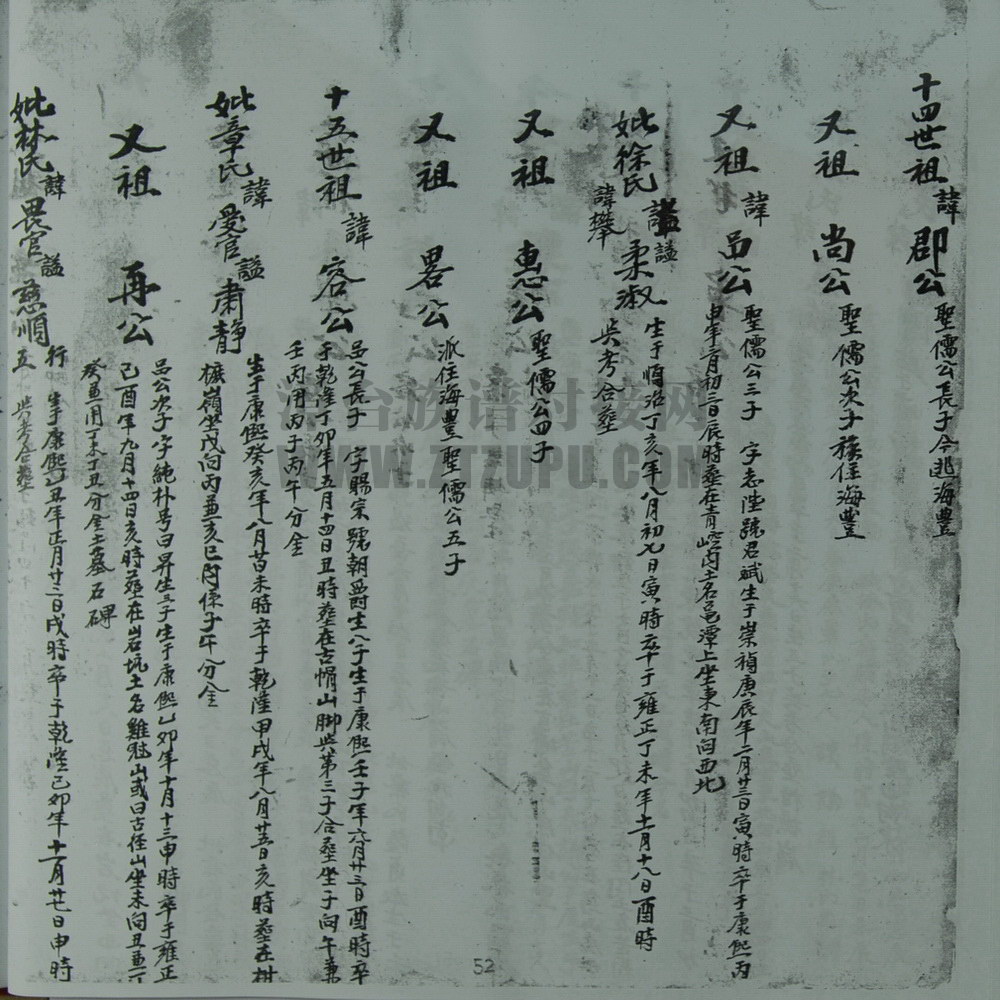 十四世祖 諱 郡公 聖儒公長子今迯海豐
又祖 尚公 聖儒公次子移住海豐
又祖 諱 呂公 聖儒公三子 字志陞號君斌生于崇禎庚辰年二月廿三日寅時卒于康熙丙
申年 月初三日辰時塟在青 內土名 潭上坐東南向西北
妣徐氏 諡 柔淑 生于順治丁亥年八月初七日寅時卒于雍正丁未年十一月十八日酉時
諱攀 與考合塟
又祖 惠公 聖儒公四子
又祖 畧公 派住海豐聖儒公五子
十五世祖 諱 容公 呂公長子 字賜宗號朝爵生八子生于康熙壬子年六月廿三日酉時卒
于乾隆丁卯年五月十四日丑時塟在古 山脚與第三子合塟坐子向午兼
壬丙用丙子丙午分金
妣章氏 諱 愛官 諡 肅静 生于康熙癸亥年八月廿日未時卒于乾隆甲戌年八月廿五日亥時塟在柑
嶺坐戌向丙兼亥巳 係子午分金
又祖 再公 呂公次子字純朴号曰昇生三子生于康熙乙卯年十月十三申時卒于雍正
己酉年九月十四日亥時塟在岩坑土名雞 山或曰古径山坐未向丑兼丁
癸兼用丁未丁丑分金土墓石碑
妣林氏 諱 畏官 諡 慈順 行 生于康熙 丑年正月廿二日戌時卒于乾隆己卯年十一月廿七日申時
五 與考合塟
澄台族谱对接网
WWW.ZTZUPU.COM
52